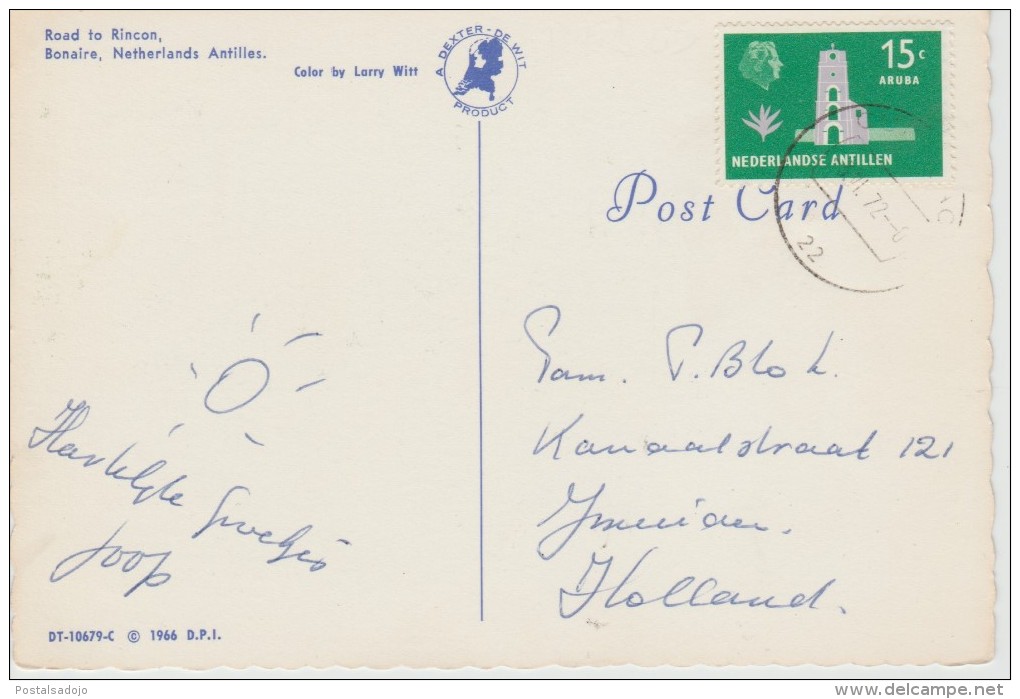 Road to Rincon,
Bonaire, Netherlands Antilles.
Color by Larry Witt
A DEXTER-DE WIT
PRODUCT
15c
ARUBA
NEDERLANDSE ANTILLEN
Post Card
72-
22
Hartelijke
Groetjes
Joop
Fam. P. Blok.
Kanaalstraat 121
IJmuiden.
Holland.
DT-10679-C © 1966 D.P.I.
Postalsadojo
www.delcampe.net